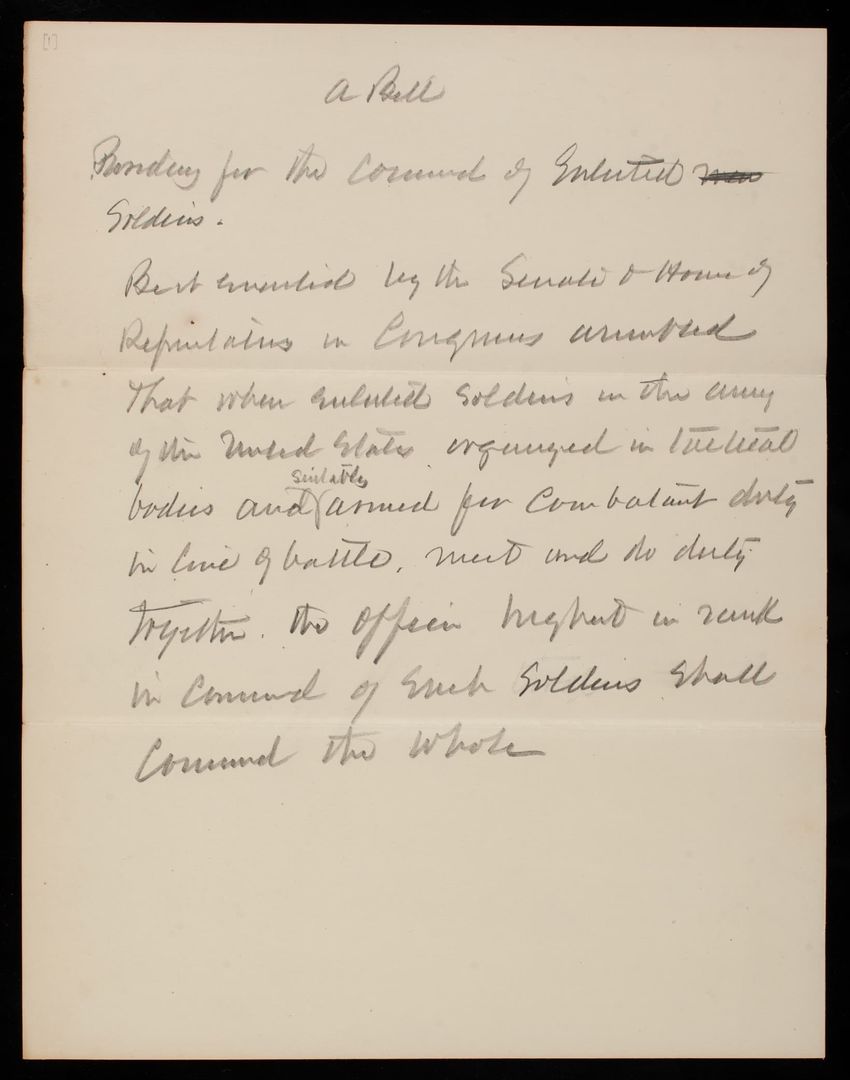 [1]
A Bill
Providing for the Command of Enlisted men
Soldiers.
Be it enacted by the Senate & House of
Representatives in Congress assembled
That when enlisted Soldiers in the army
of the United States organized in tactical
suitably
bodies and armed for Combatant duty
in line of battle, meet and do duty
together. the Officer highest in rank
in Command of Such Soldiers Shall
Command the Whole